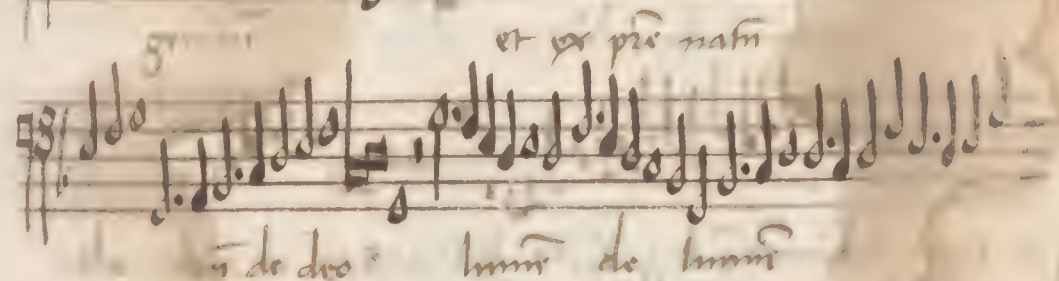 et ex prē natū
de deo lumē de lumiē